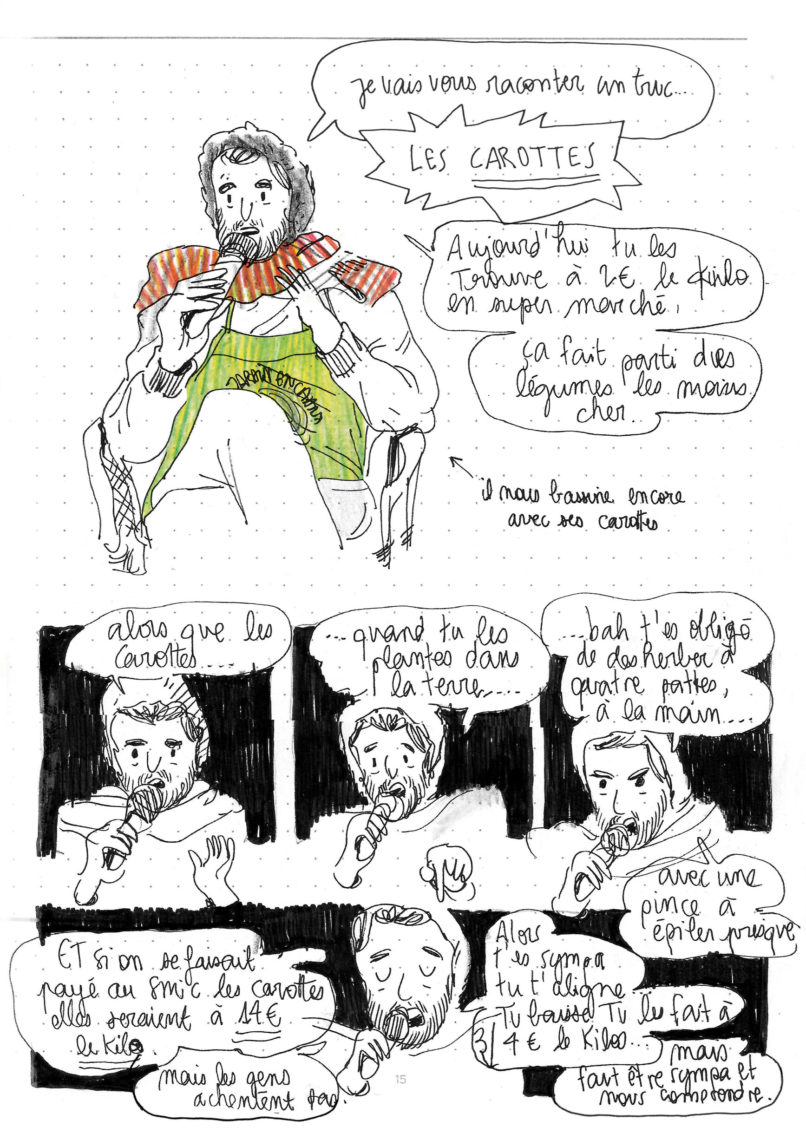 je vais vous raconter un truc...
LES CAROTTES
Aujourd'hui tu les
Trouve à 2€ le kilo
en super marché,
ça fait parti des
légumes les moins
cher...
il nous bassine encore
avec ses carottes
alors que les
carottes....
...quand tu les
plantes dans
la terre....
...bah t'es obligé
de desherber à
quatre pattes,
à la main....
avec une
pince à
épiler presque
ET si on se faisait
payé au smic les carottes
elles seraient à 14€
le kilo.
mais les gens
achentent pas.
Alors
t'es sympa
tu t'aligne...
Tu baisse Tu les fait à
3/4€ le kilos...
mais
faut être sympa et
nous comprendre.
15